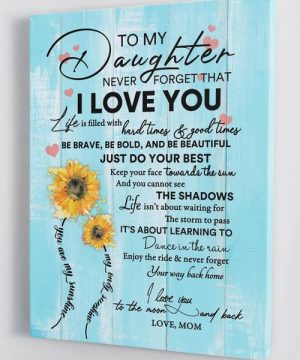 TO MY
Daughter
NEVER FORGET THAT
I LOVE YOU
Life is filled with hard times & good times
BE BRAVE, BE BOLD, AND BE BEAUTIFUL
JUST DO YOUR BEST
Keep your face towards the sun
And you cannot see
THE SHADOWS
Life isn't about waiting for
The storm to pass
IT'S ABOUT LEARNING TO
Dance in the rain
Enjoy the ride & never forget
Your way back home
I love you
to the moon and back
LOVE, MOM
you are my sunshine
my only sunshine